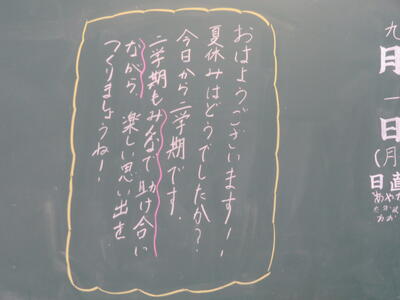 おはようございます！！
夏休みはどうでしたか？
今日から二学期です．
二学期もみんなで助け合い
ながら，楽しい思い出を
つくりましょうね！
九月一日(月
日直